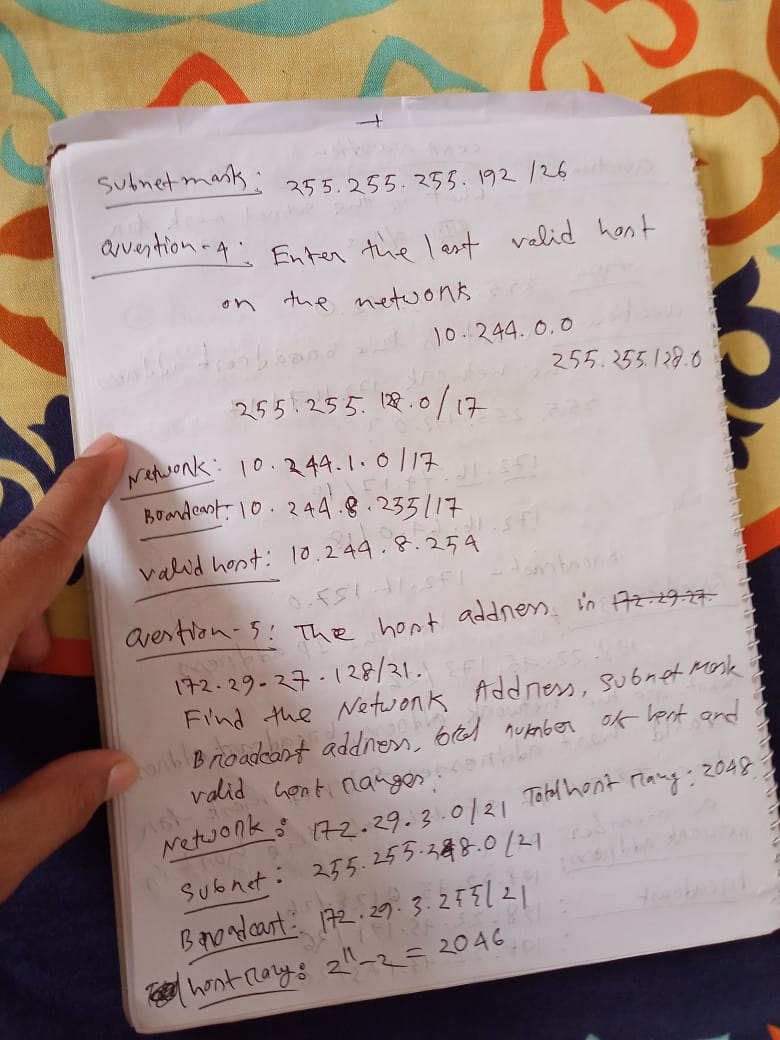 Subnetmask: 255.255.255.192 /26
Question-4: Enter the last valid host
on the network
10.244.0.0
255.255.128.0
255.255.128.0/17
Network: 10.244.1.0/17
Boardcast: 10.244.8.255/17
Valid host: 10.244.8.254
Question-5: The host address in 172.29.27.
172.29.27.128/21.
Find the Network Address, Subnet mask
Broadcast address, total number of host and
valid host ranges.
Network: 172.29.3.0/21 Total host rang: 2048.
Subnet: 255.255.248.0/21
Broadcast: 172.29.3.255/21
host rang: 2^11-2 = 2046.